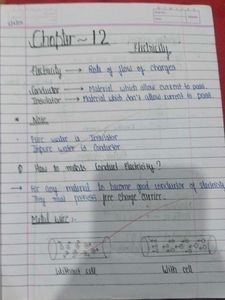 Chapter ~ 12
Electricity
Electricity → Rate of flow of charges
Conductor → Material which allow current to pass.
Insulator → Material which don't allow current to pass.
* Note
- Pure water is Insulator
Impure water is Conductor
Q How to metals Conduct Electricity?
→ For any material to become good conductor of Electricity
They must possess free charge carrier.
Metal wire :-
Without cell
With cell